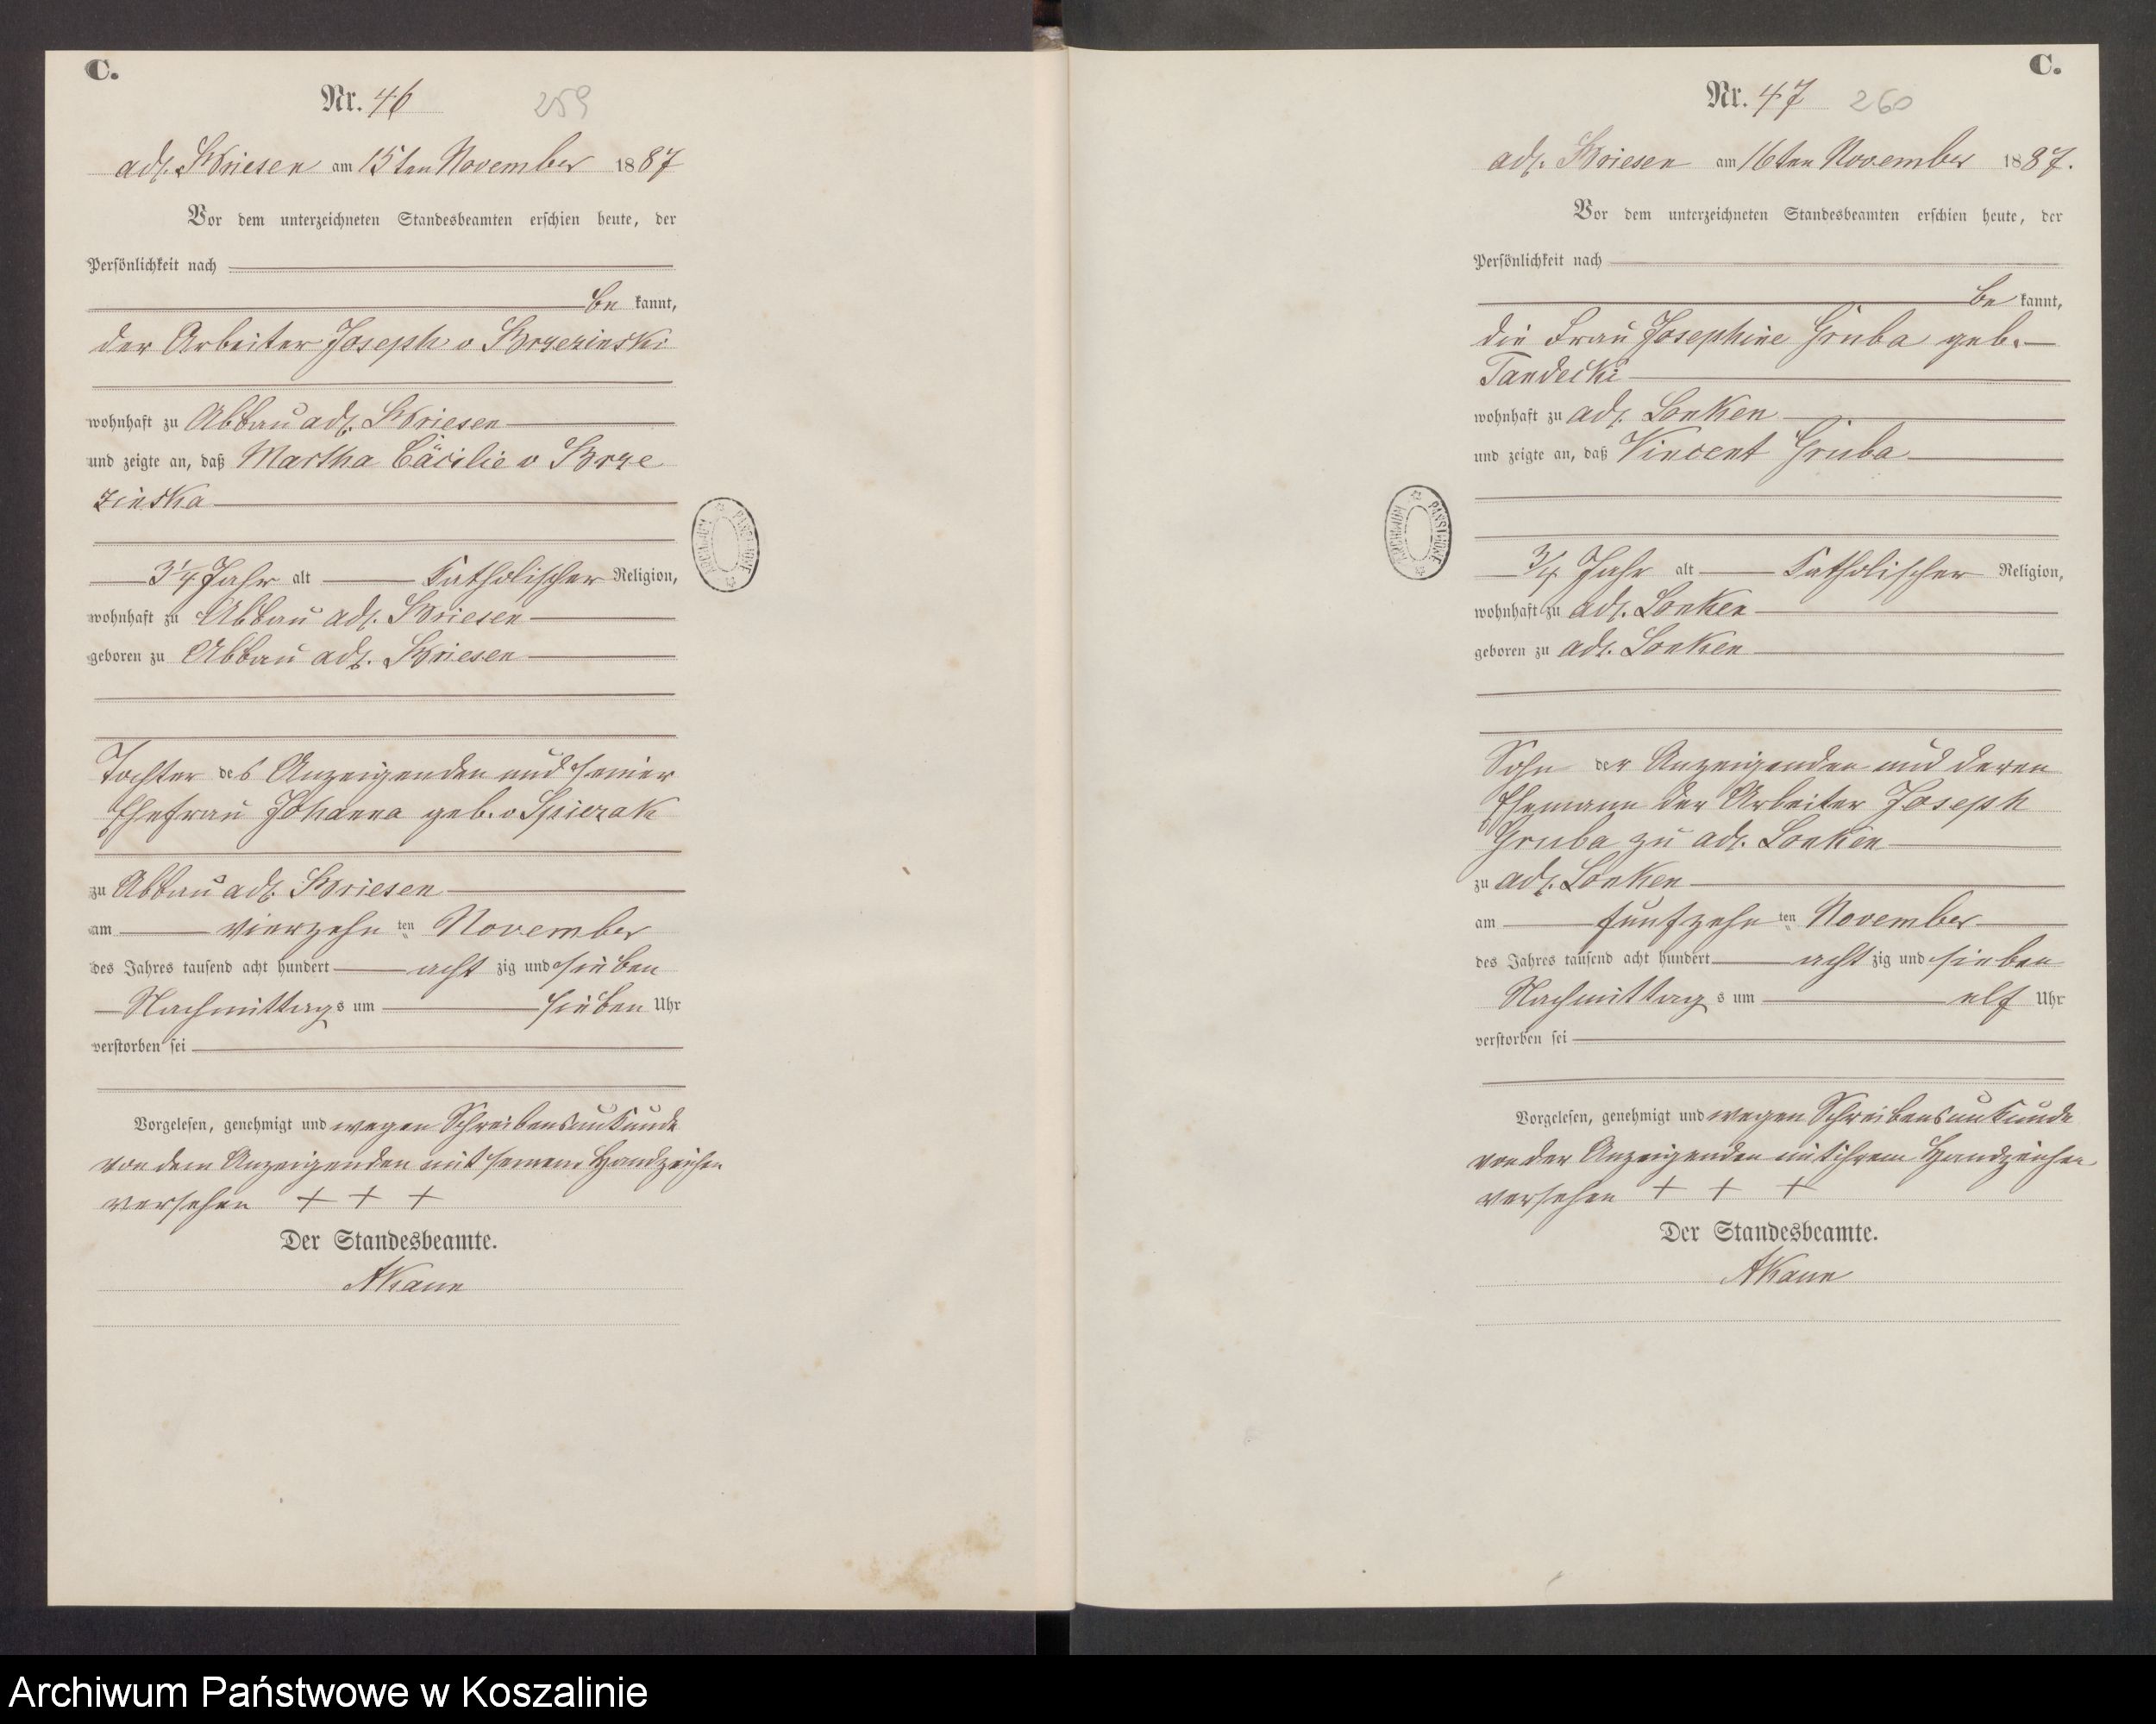 C.
Nr. 46 259
adl. Briesen am 15ten November 1887
Vor dem unterzeichneten Standesbeamten erschien heute, der
Persönlichkeit nach
be kannt,
der Arbeiter Joseph v Brzezinski
wohnhaft zu Abbau adl. Briesen
und zeigte an, daß Martha Cäcilie v Brze
zinska
3 1/4 Jahr alt katholischer Religion,
wohnhaft zu Abbau adl. Briesen
geboren zu Abbau adl. Briesen
Tochter des Anzeigenden und seiner
Ehefrau Johanna geb. v Spiczak
zu Abbau adl. Briesen
am vierzehn ten November
des Jahres tausend acht hundert acht zig und sieben
Nachmittags um sieben Uhr
verstorben sei
Vorgelesen, genehmigt und wegen Schreibensunkunde
von dem Anzeigenden mit seinem Handzeichen
versehen + + +
Der Standesbeamte.
ARCHIWUM PAŃSTWOWE
C.
Nr. 47 260
adl. Briesen am 16ten November 1887.
Vor dem unterzeichneten Standesbeamten erschien heute, der
Persönlichkeit nach
be kannt,
die Frau Josephine Gruba geb.
Tandecki
wohnhaft zu adl. Lonken
und zeigte an, daß Vincent Gruba
3/4 Jahr alt katholischer Religion,
wohnhaft zu adl. Lonken
geboren zu adl. Lonken
Sohn der Anzeigenden und deren
Ehemann der Arbeiter Joseph
Gruba zu adl. Lonken
zu adl. Lonken
am fünfzehn ten November
des Jahres tausend acht hundert acht zig und sieben
Nachmittag s um elf Uhr
verstorben sei
Vorgelesen, genehmigt und wegen Schreibensunkunde
von der Anzeigenden mit ihrem Handzeichen
versehen + + +
Der Standesbeamte.
ARCHIWUM PAŃSTWOWE
Archiwum Państwowe w Koszalinie